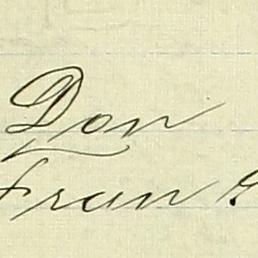 Don
Fran